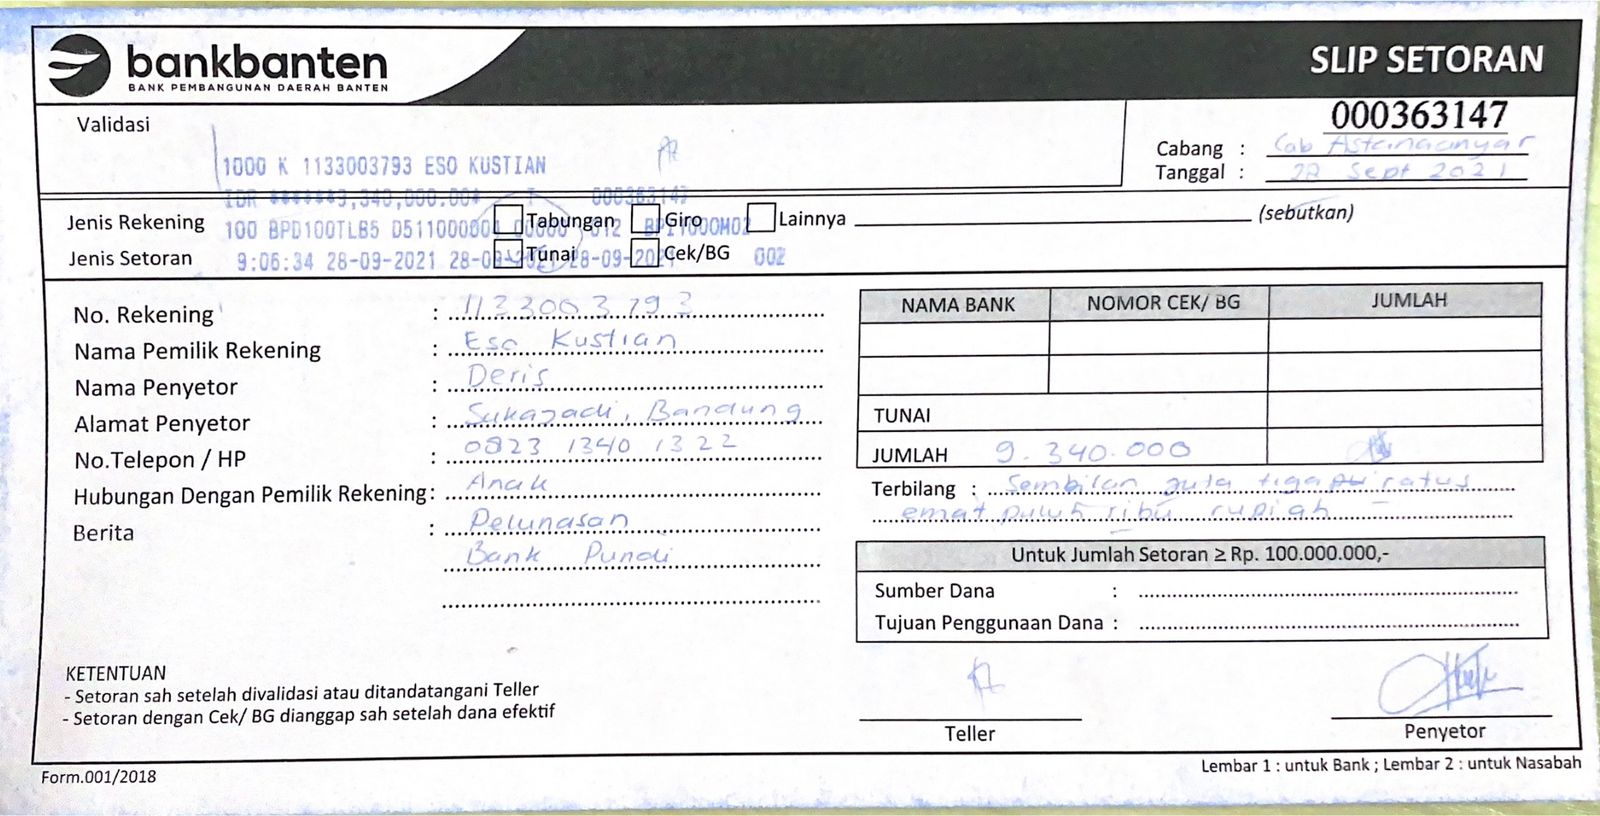 bankbanten
BANK PEMBANGUNAN DAERAH BANTEN
SLIP SETORAN
000363147
Validasi
Cabang : Cab Astanaanyar
Tanggal : 28 Sept 2021
1000 K 1133003793 ESO KUSTIAN
IDR *******9,340,000.00* 000363147
Jenis Rekening Tabungan Giro Lainnya (sebutkan)
100 BPD100TLB5
Jenis Setoran Tunai Cek/BG
9:06:34 28-09-2021 002
No. Rekening : 1133003793
Nama Pemilik Rekening : Eso Kustian
Nama Penyetor : Deris
Alamat Penyetor : Sukajadi, Bandung
No.Telepon / HP : 0823 1340 1322
Hubungan Dengan Pemilik Rekening: Anak
Berita : Pelunasan
Bank Pundi
NAMA BANK NOMOR CEK/ BG JUMLAH
TUNAI
JUMLAH 9.340.000
Terbilang : Sembilan juta tiga ratus
emat puluh ribu rupiah
Untuk Jumlah Setoran ≥ Rp. 100.000.000,-
Sumber Dana :
Tujuan Penggunaan Dana :
KETENTUAN
- Setoran sah setelah divalidasi atau ditandatangani Teller
- Setoran dengan Cek/ BG dianggap sah setelah dana efektif
Teller
Penyetor
Form.001/2018
Lembar 1 : untuk Bank ; Lembar 2 : untuk Nasabah